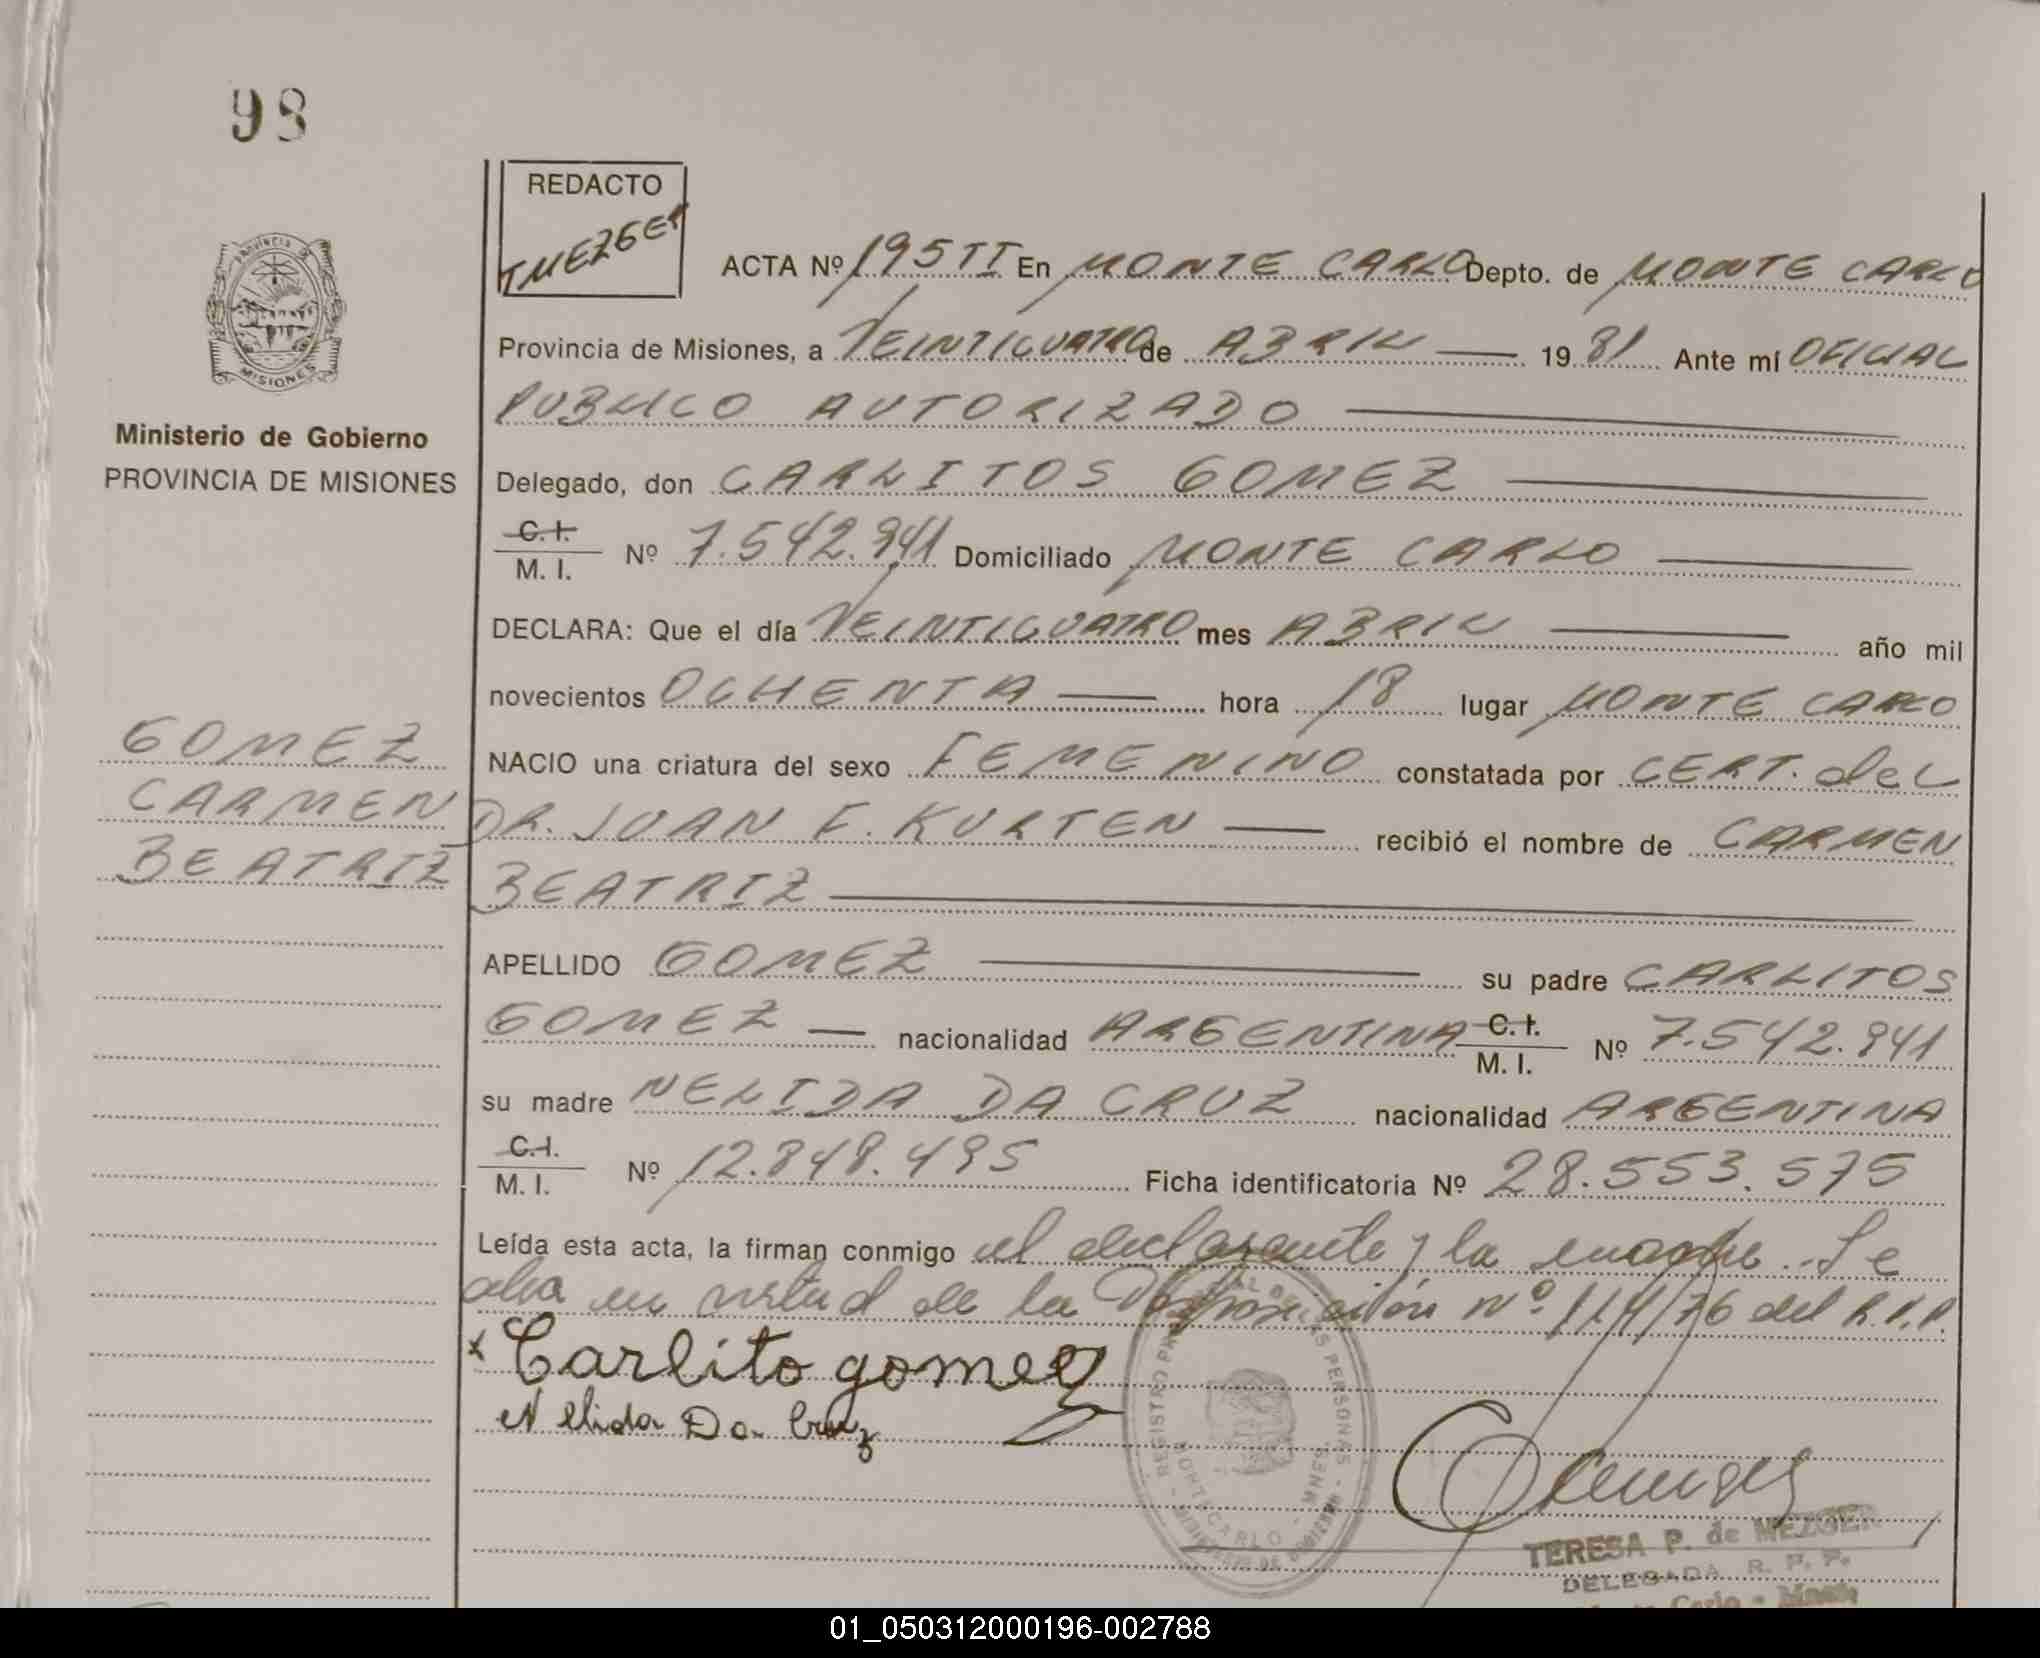 98
REDACTO
TMEZGER
PROVINCIA DE
MISIONES
Ministerio de Gobierno
PROVINCIA DE MISIONES
ACTA Nº 195 TI En MONTE CARLO Depto. de MONTE CARLO
Provincia de Misiones, a VEINTICUATRO de ABRIL — 19 81 Ante mí OFICIAL
PUBLICO AUTORIZADO —
Delegado, don CARLITOS GOMEZ —
C.I.
M. I. Nº 7.542.941 Domiciliado MONTE CARLO —
DECLARA: Que el día VEINTICUATRO mes ABRIL — año mil
novecientos OCHENTA — hora 18 lugar MONTE CARLO
NACIO una criatura del sexo FEMENINO constatada por CERT. del
DR. JUAN F. KURTEN — recibió el nombre de CARMEN
BEATRIZ —
GOMEZ
CARMEN
BEATRIZ
APELLIDO GOMEZ — su padre CARLITOS
GOMEZ — nacionalidad ARGENTINA C.I.
M. I. Nº 7.542.941
su madre NELIDA DA CRUZ nacionalidad ARGENTINA
C.I.
M. I. Nº 12.848.495 Ficha identificatoria Nº 28.553.575
Leída esta acta, la firman conmigo el declarante y la madre. Se
labra en virtud de la Disposición nº 114/76 del R.P.P.
x Carlito gomez
Nelida Da Cruz
REGISTRO PROVINCIAL DE LAS PERSONAS
MONTECARLO - MNES.
MINISTERIO DE GOBIERNO
TERESA P. de MEZGER
DELEGADA R. P. P.
Monte Carlo - Mnes.
01_050312000196-002788